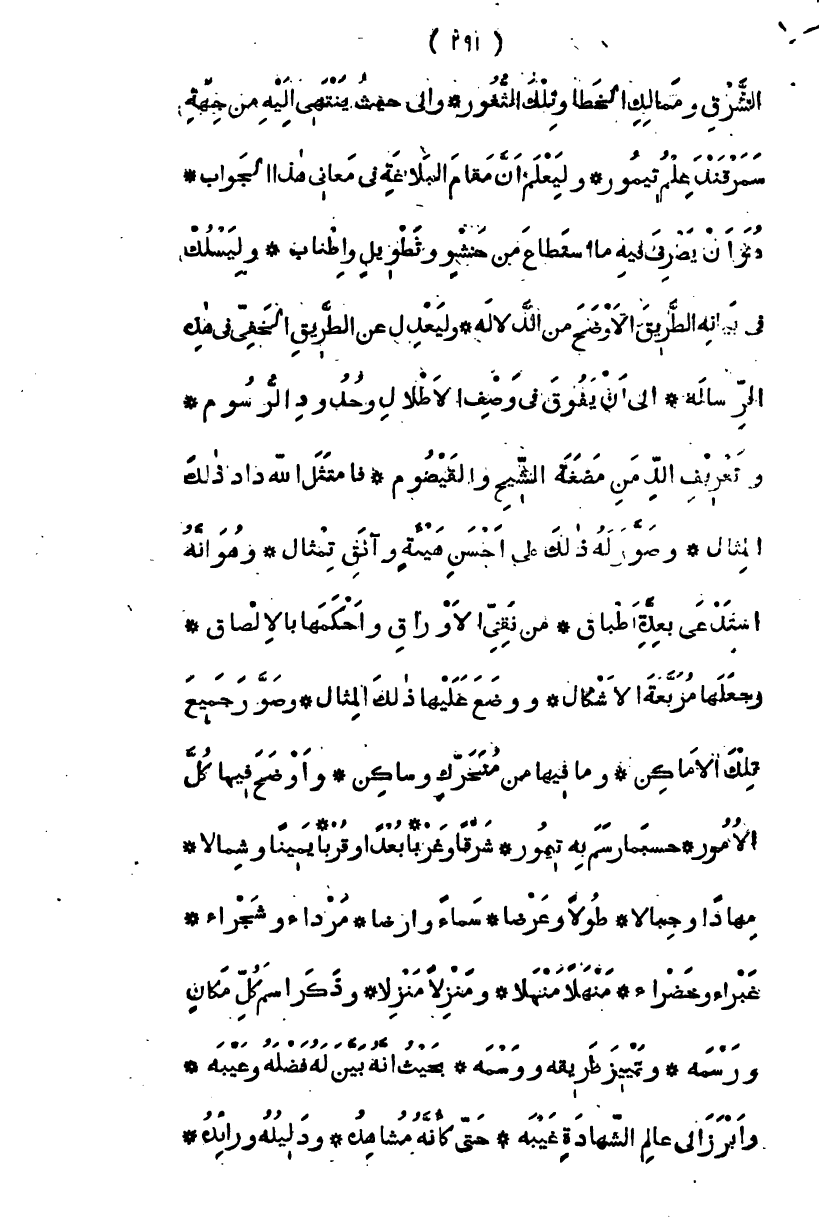 ( ٢٩١ )
الشَّرْقِ ومَمالِكِ الخَطا وتِلْكَ الثُّغُور * والى حيثُ يَنْتَهى اِلَيْهِ مِن جِهَةِ
سَمَرْقَنْدَ عِلْمُ تيمُور * ولِيَعْلَمْ اَنَّ مَقامَ البَلاغَةِ فى مَعانى هٰذا الجَواب *
دُوَ اَنْ يَصْرِفَ فيهِ ما اسْتَطاعَ مِن حَشْوٍ وتَطْوِيلٍ واِطْناب * ولِيَسْلُكْ
فى بَيانِه الطَّرِيقَ الاَوْضَحَ من الدَّلالَه * ولِيَعْدِل عن الطَّرِيقِ الخَفِىّ فى هٰذِهِ
الرِّسالَه * الى اَنْ يَفُوقَ فى وَصْفِ الاَطْلالِ وحُدُودِ الرُّسُوم *
وتَعْرِيفِ الدِّمَنِ مَضَغَةَ الشِّيحِ والقَيْصُوم * فامتَثَلَ اللّه داد ذٰلِكَ
المِثال * وصَوَّرَ لَهُ ذٰلِكَ على اَحْسَنِ هَيْئَةٍ وآنَقِ تِمْثال * وهُوَ اَنَّهُ
اسْتَدْعَى بِعِدَّةِ اَطْباق * من نَقِىّ الاَوْراقِ واَحْكَمَها بالاِلْصاق *
وجعَلَها مُرَبَّعَةَ الاَشْكال * ووضَعَ عَلَيْها ذٰلِكَ المِثال * وصَوَّرَ جَمِيعَ
تِلْكَ الاَماكِن * وما فِيها من مُتَحَرِّكٍ وساكِن * واَوْضَحَ فِيها كُلَّ
الاُمُور * حسبَما رسَمَ بِه تيمُور * شَرْقًا وغَرْبًا * بُعْدًا وقُرْبًا * يَمِينًا وشِمالا *
مِهادًا وجِبالا * طُولًا وعَرْضا * سَماءً وارضا * مَرْداء وشَجْراء *
غَبْراء وخَضْراء * مَنْهَلًا مَنْهَلا * ومَنْزِلًا مَنْزِلا * وذَكَرَ اسمَ كُلِّ مَكانٍ
ورَسْمَه * وتَمْيِيزَ طَرِيقِه ووَسْمَه * بحَيْثُ انَّهُ بَيَّنَ لَهُ فَضْلَهُ وعَيْبَه *
واَبْرَزَ الى عالِمِ الشَّهادَةِ غَيْبَه * حَتّى كأنَّهُ مُشاهِدُه * ودَلِيلُهُ ورائِدُه *